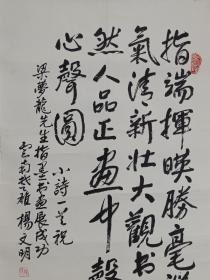 指端揮暎勝毫
氣清新壯大觀書
然人品正畫中
心聲圓 小詩一首祝
梁夢龍先生指墨书画展成功
雲南楚雄 楊文明